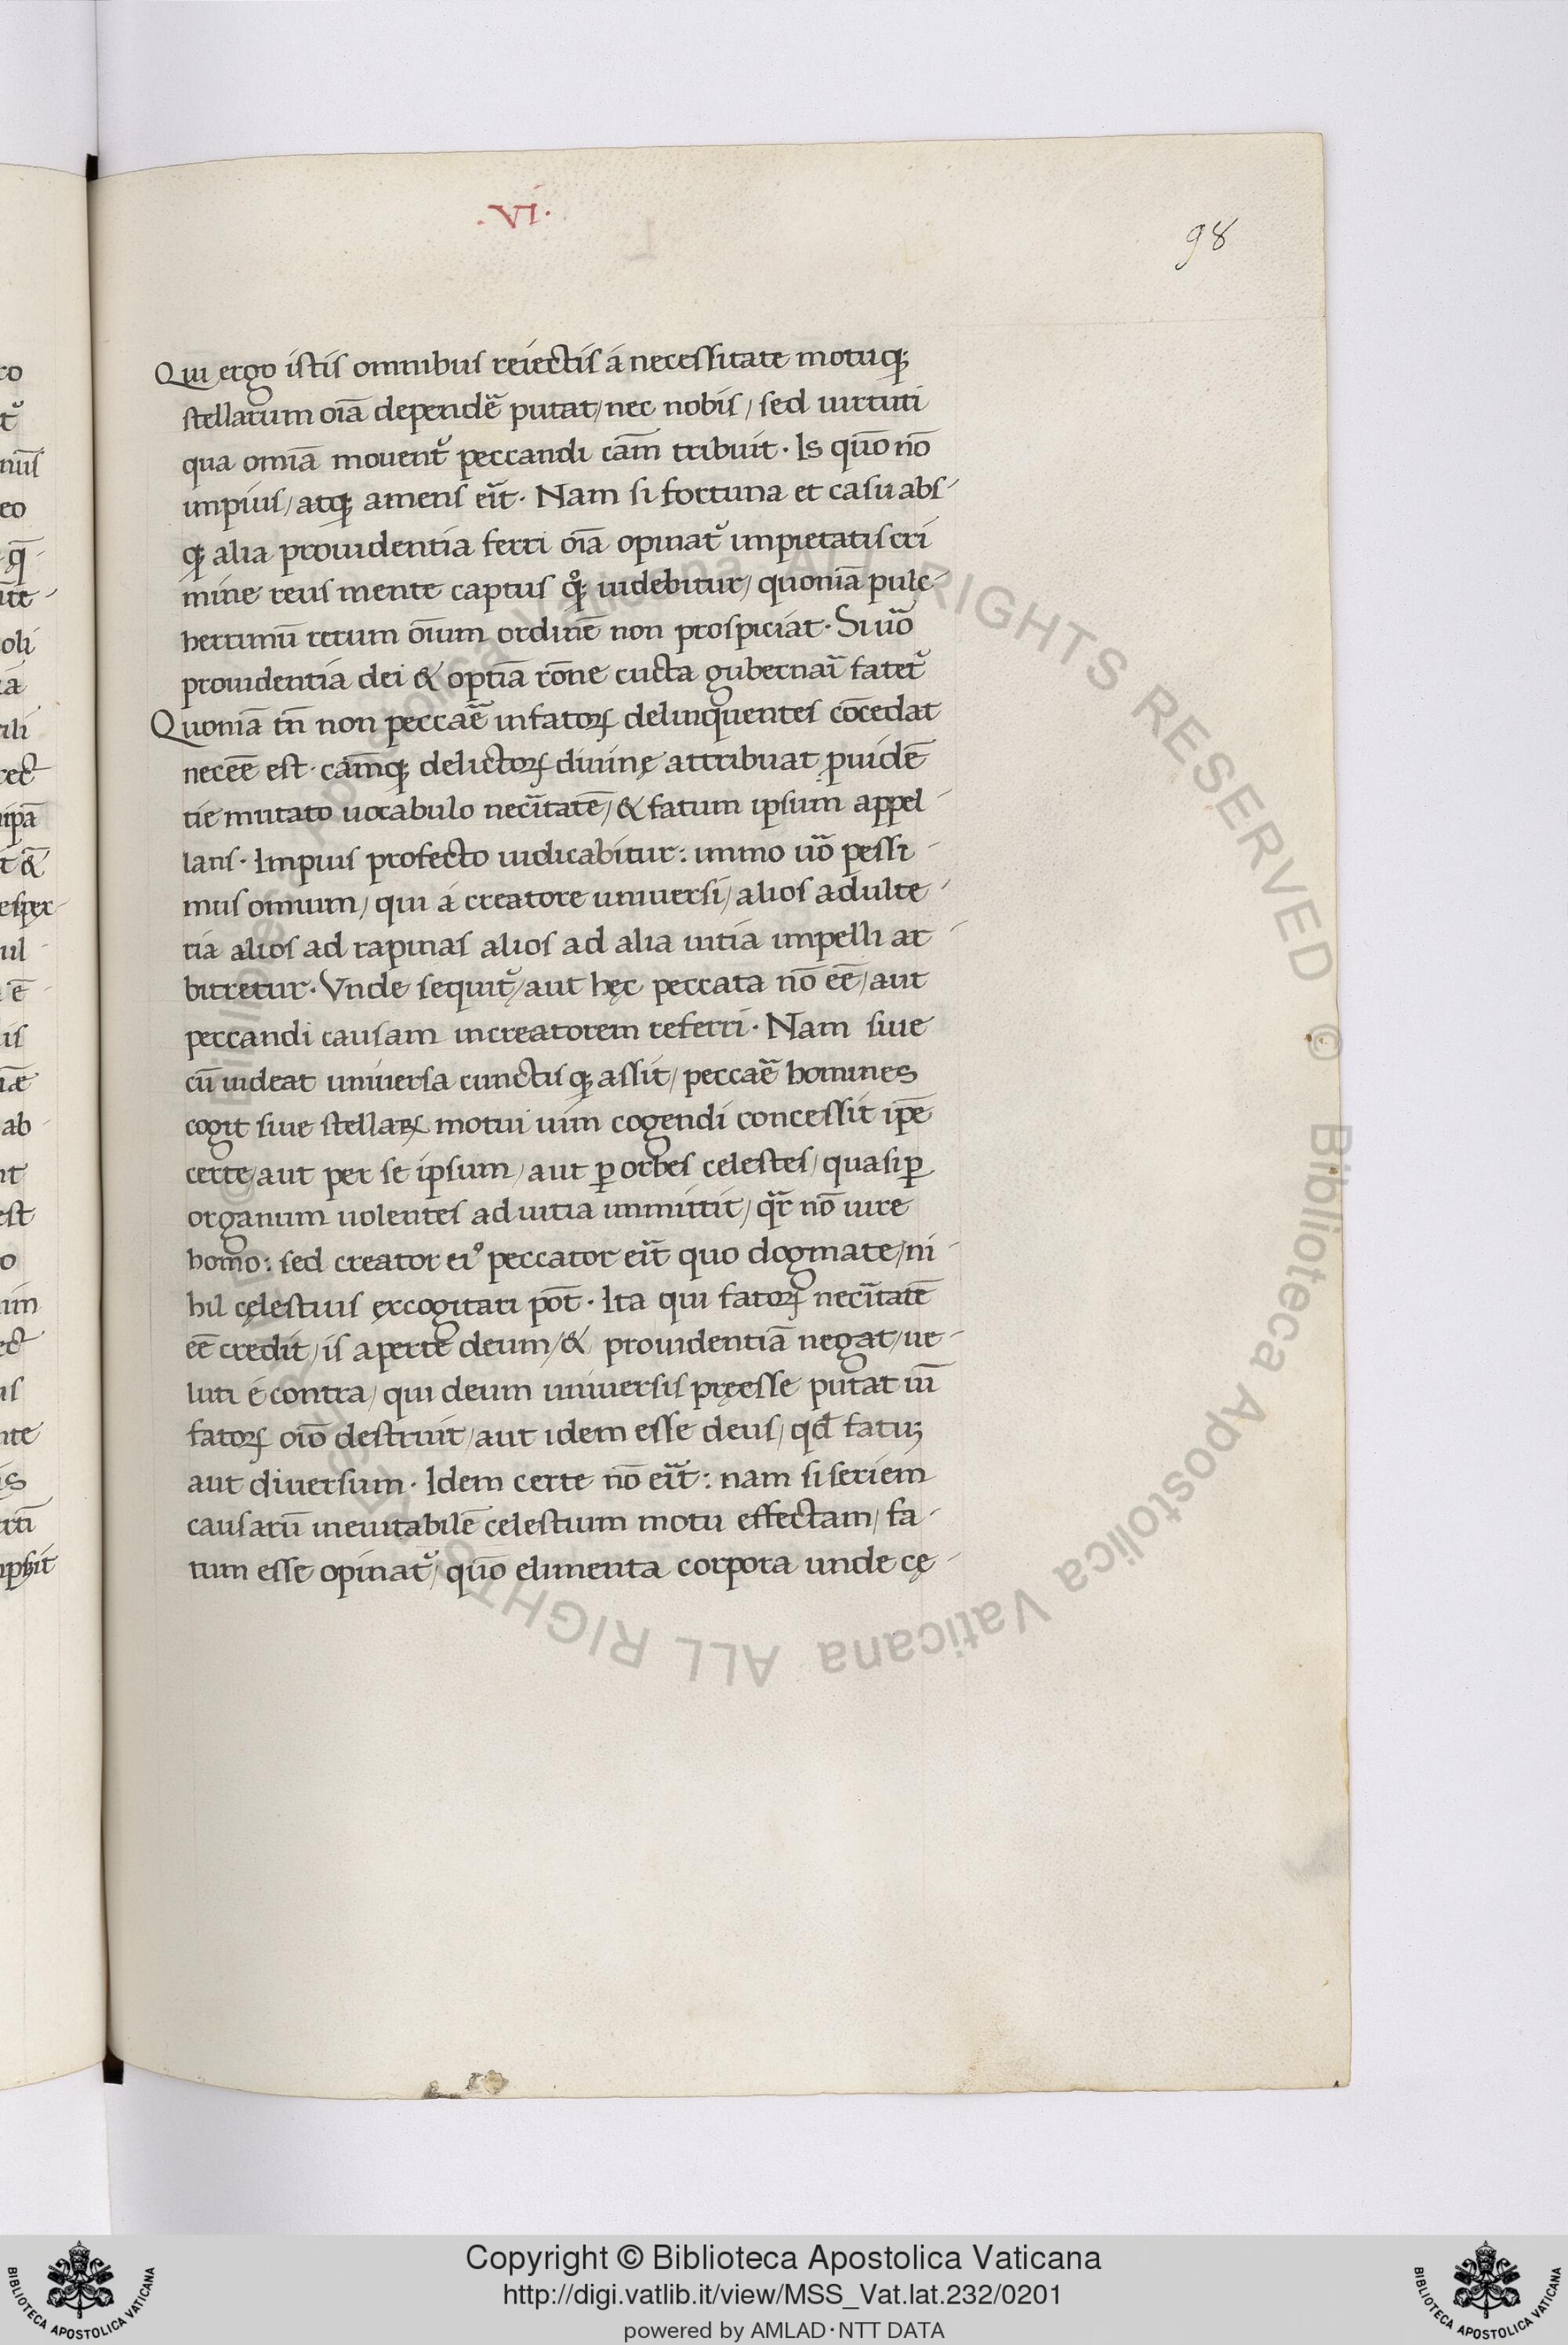 .VI.
98
Qui ergo istis omnibus reiectis á necessitate motuq;
stellarum oı̄a dependē putat/ nec nobis/ sed uirtuti
qua omīa mouent᷑ peccandi cām tribuit. Is quō nō
impius/ atq; amens eı̄t. Nam si fortuna et casu abs-
q; alia prouidentia ferri oı̄a opinat᷑ impietatis cri
mine reus mente captus qͦ; uidebitur/ quoniā pulc-
herrimū rerum oı̄um ordinē non prospiciat. Si uō
prouidentia dei & optı̄a rōne cūcta gubernaī fatet᷑
Quoniā tn̄ non peccaē in fatoꝝ delinquentes cōcedat
neceē est. cām̄q; delictoꝝ diuinę attribuat ꝓuidē
tie mutato uocabulo necı̄tatē/ & fatum ipsum appel
lans. Impius profecto iudicabitur: immo uō pessi-
mus omium/ qui á creatore uniuersi/ alios adulte-
ria alios ad rapinas alios ad alia uitia impelli ar-
bitretur. Vnde sequit᷑/ aut hęc peccata nō eē/ aut
peccandi causam in creatorem referri. Nam siue
cū uideat uniuersa cunctisq; assit/ peccaē homines
cogit siue stellaꝝ motui uim cogendi concessit ip̄e
certe/ aut per se ipsum/ aut ꝑ orbes celestes/ quasi ꝑ
organum uolentes ad uitia inmittit/ qr̄ nō iure
homo: sed creator eiꝰ peccator eı̄t quo dogmate/ ni-
hil cęlestius ęxcogitari pōt. Ita qui fatoꝝ necı̄tatē
eē credit/ is aperte deum/ & prouidentiā negat/ ue-
luti é contra/ qui deum uniuersis pręesse putat uī
fatoꝝ oı̄o destruit/ aut idem esse deus/ qd̄ fatuꝫ
aut diuersum. Idem certe nō eı̄t: nam si seriem
causarū ineuitabilē celestium motu effectam/ fa-
tum esse opinat᷑/ quō elimenta corpora unde cę-
© Biblioteca Apostolica Vaticana ALL RIGHTS RESERVED
Copyright © Biblioteca Apostolica Vaticana
http://digi.vatlib.it/view/MSS_Vat.lat.232/0201
powered by AMLAD·NTT DATA
BIBLIOTECA APOSTOLICA VATICANA
BIBLIOTECA APOSTOLICA VATICANA